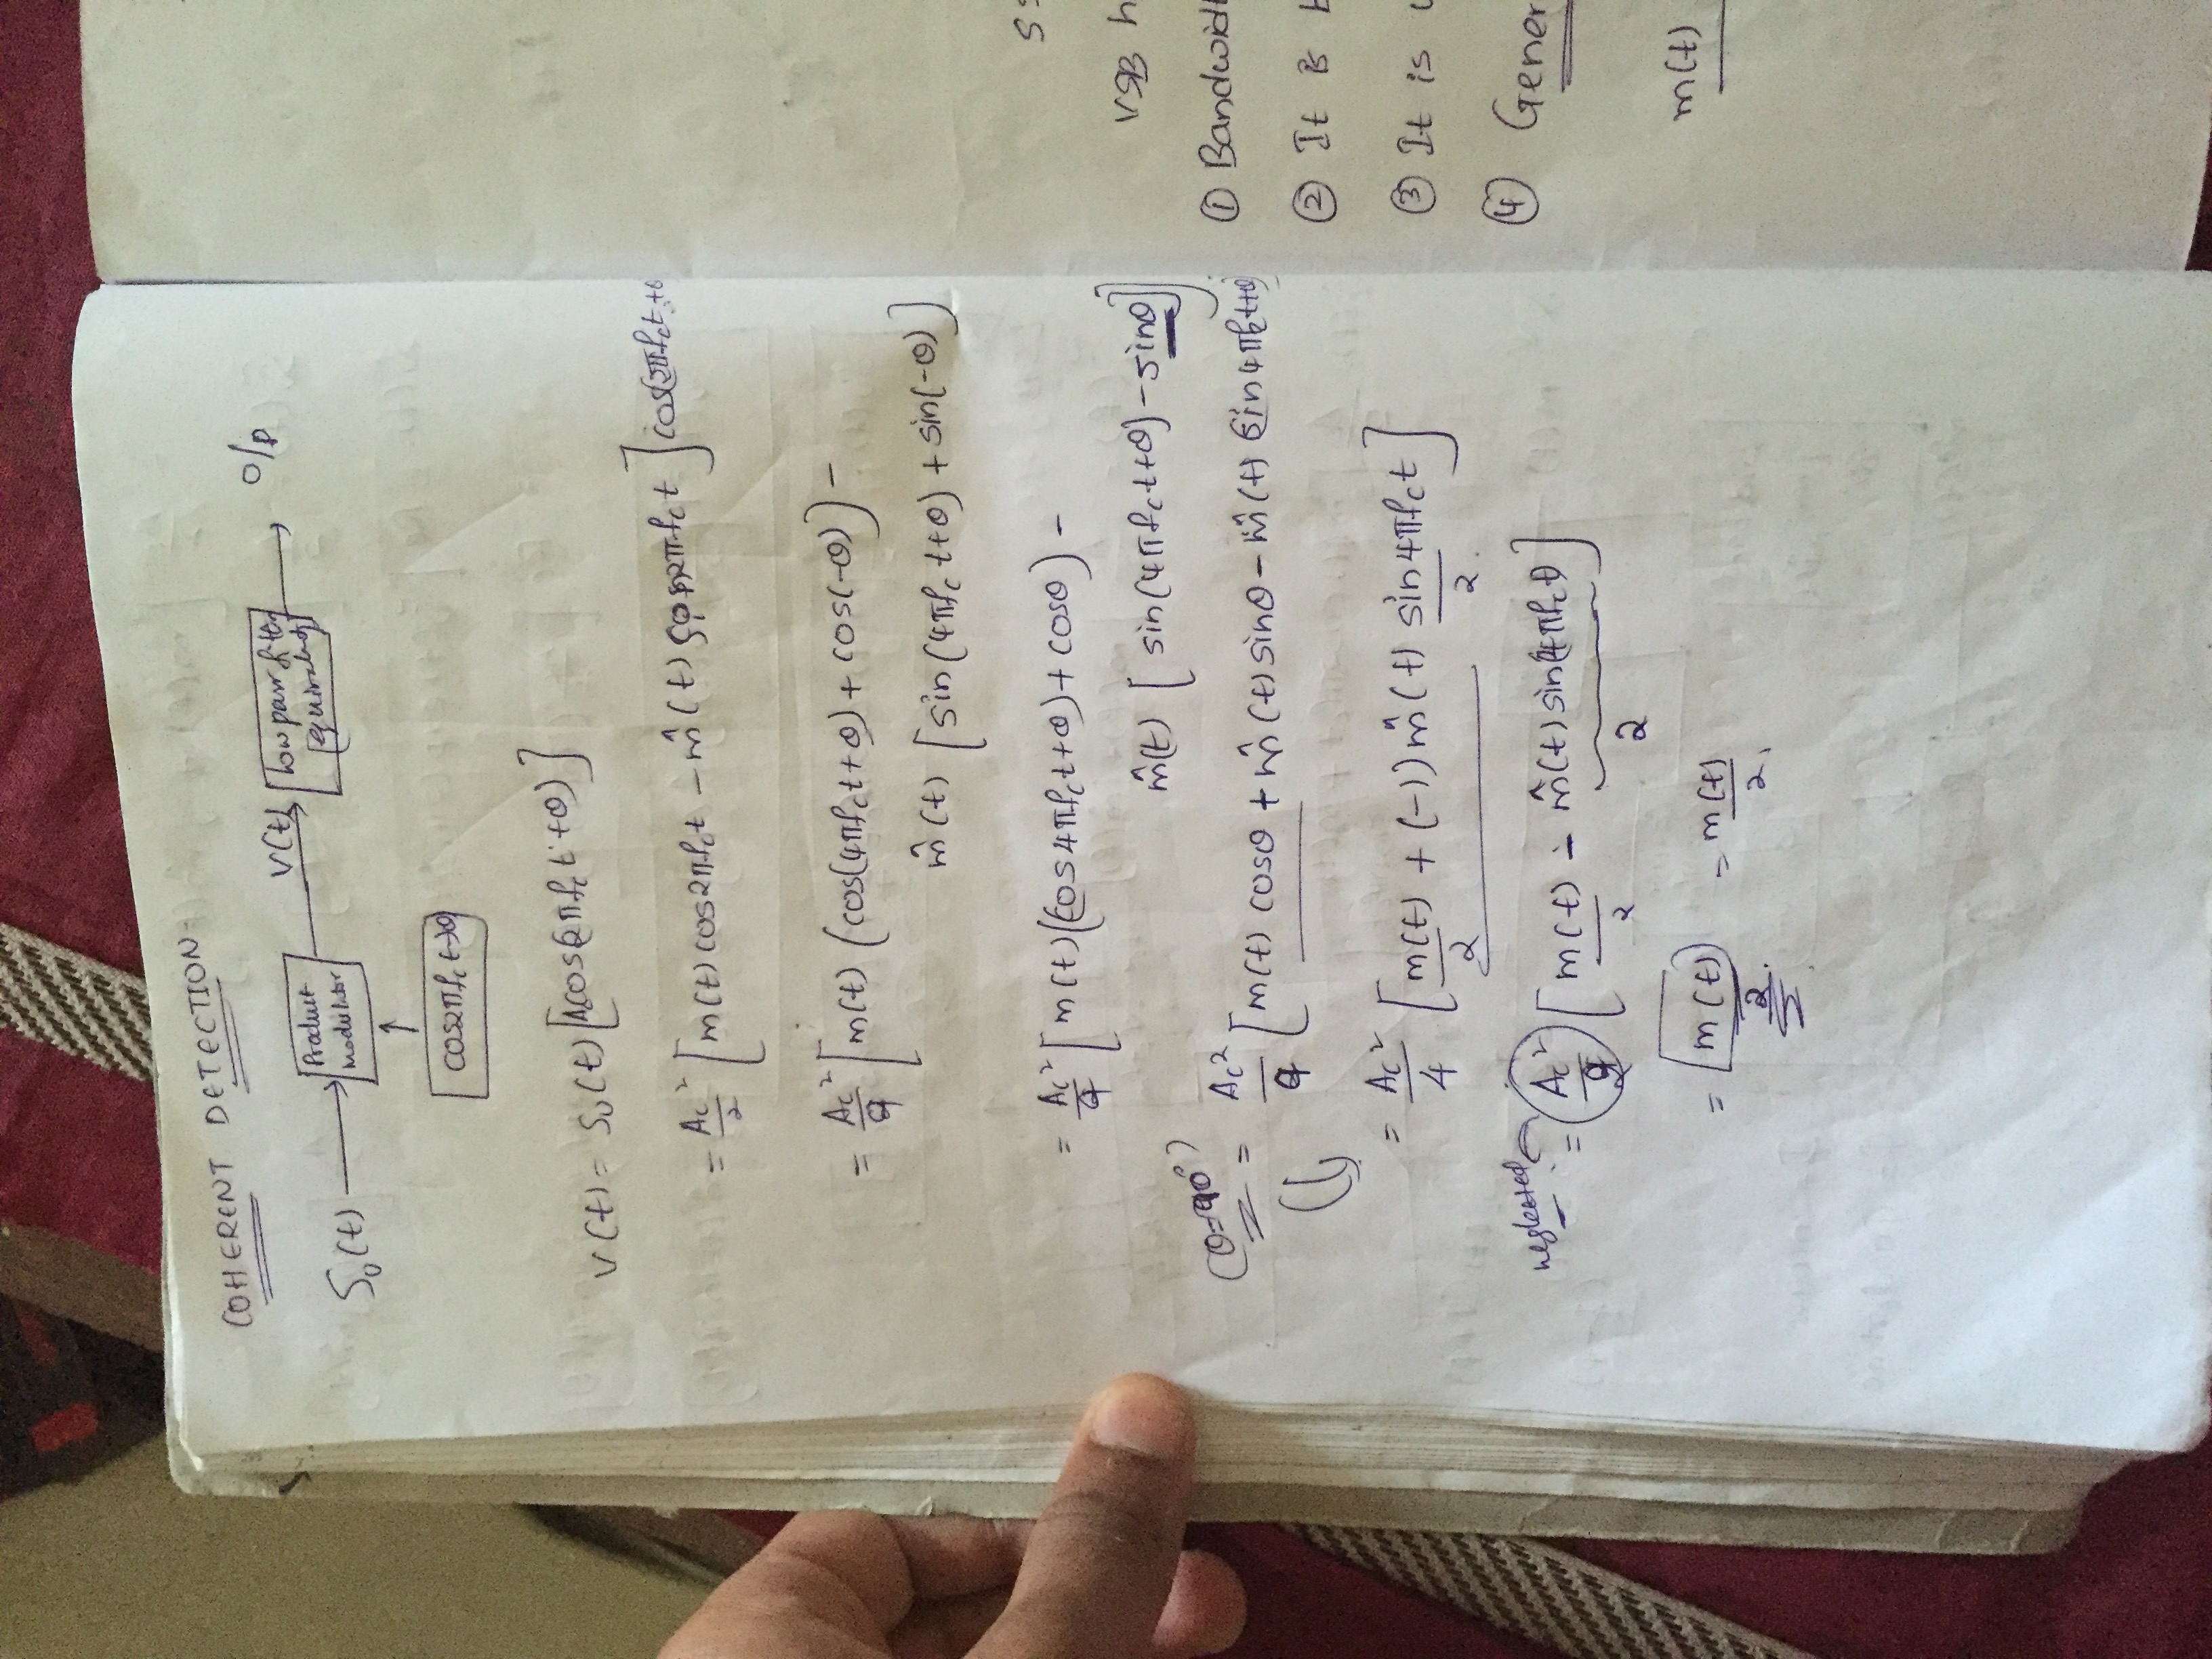 COHERENT DETECTION-
S₀(t) → Product modulator → V(t) → Low pass filter → O/P
cos2πf_c t→θ
V(t) = S₀(t)[Acos(2πf_c t+θ)]
= Ac²/2 [m(t) cos2πf_c t - m̂(t) sin2πf_c t] cos(2πf_c t+θ
= Ac²/4 [m(t) (cos(4πf_c t+θ) + cos(-θ)) -
m̂(t) [sin(4πf_c t+θ) + sin(-θ)]
= Ac²/4 [m(t)(cos4πf_c t+θ) + cosθ) -
m̂(t) [sin(4πf_c t+θ) - sinθ]]
(θ=90°)
= Ac²/4 [m(t) cosθ + m̂(t) sinθ - m̂(t) (sin4πf_c t+θ)
= Ac²/4 [m(t)/2 + (-1) m̂(t) sin4πf_c t/2]
neglected
= Ac²/2 [m(t)/2 - m̂(t) sin(4πf_c t)/2]
= m(t)/2 = m(t)/2.
SS
VSB h
① Bandwidt
② It is b
③ It is u
④ Gener
m(t)